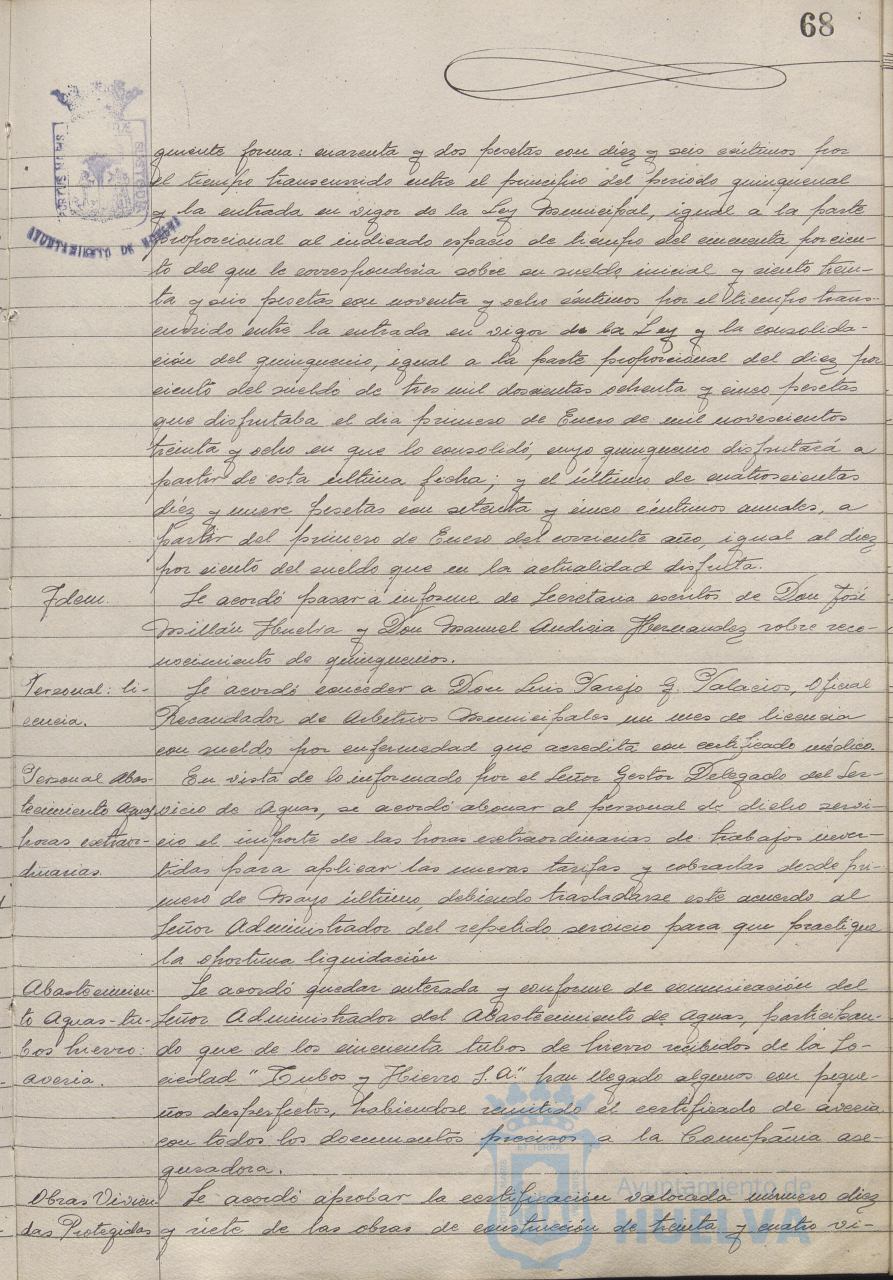 68
PORTUS MARIS
ET TERRE
CUSTODIE
AYUNTAMIENTO DE HUELVA
guiente forma: cuarenta y dos pesetas con diez y seis céntimos por
el tiempo transcurrido entre el principio del periodo quinquenal
y la entrada en vigor de la Ley Municipal, igual a la parte
proporcional al indicado espacio de tiempo del cincuenta por cien-
to del que le correspondería sobre su sueldo inicial y ciento trein-
ta y seis pesetas con noventa y ocho céntimos por el tiempo trans-
currido entre la entrada en vigor de la Ley y la consolida-
ción del quinquenio, igual a la parte proporcional del diez por
ciento del sueldo de tres mil doscientas ochenta y cinco pesetas
que disfrutaba el dia primero de Enero de mil novescientos
treinta y ocho en que lo consolidó, cuyo quinquenio disfrutará a
partir de esta última fecha; y el último de cuatroscientas
diez y nueve pesetas con setenta y cinco céntimos anuales, a
partir del primero de Enero del corriente año, igual al diez
por ciento del sueldo que en la actualidad disfruta.
Idem. Se acordó pasar a informe de Secretaria escritos de Don José
Millán Huelva y Don Manuel Audicia Hernandez sobre reco-
nocimiento de quinquenios.
Personal: li- Se acordó conceder a Don Luis Parejo G. Palacios, Oficial
cencia. Recaudador de Arbitrios Municipales un mes de licencia
con sueldo por enfermedad que acredita con certificado médico.
Personal Abas- En vista de lo informado por el Señor Gestor Delegado del Ser-
tecimiento Aguas vicio de Aguas, se acordó abonar al personal de dicho servi-
horas extraor- cio el importe de las horas extraordinarias de trabajos inver-
dinarias. tidas para aplicar las nuevas tarifas y cobrarlas desde pri-
mero de Mayo último, debiendo trasladarse este acuerdo al
Señor Administrador del repetido servicio para que practique
la oportuna liquidación
Abastecimien- Se acordó quedar enterada y conforme de comunicación del
to Aguas-tu- Señor Administrador del Abastecimiento de Aguas, participan-
bos hierro: do que de los cincuenta tubos de hierro recibidos de la So-
averia. ciedad "Tubos y Hierro S.A." han llegado algunos con peque-
ños desperfectos, habiendose remitido el certificado de averia
con todos los documentos precisos a la Compañia ase-
guradora.
Obras Vivien- Se acordó aprobar la certificación valorada número diez
das Protegidas y siete de las obras de construcción de treinta y cuatro vi-
Ayuntamiento de
HUELVA